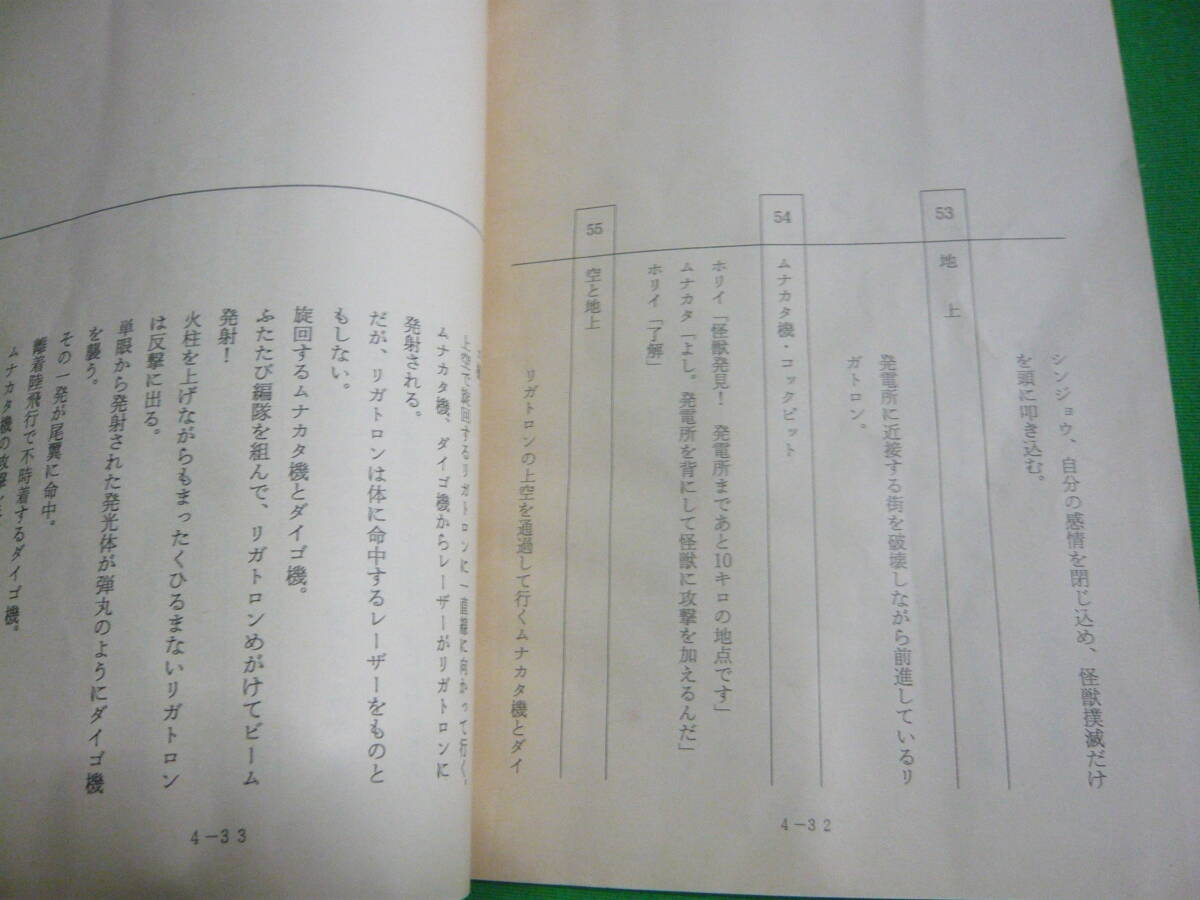 シンジョウ、自分の感情を閉じ込め、怪獣撲滅だけ
を頭に叩き込む。
53
地　上
発電所に近接する街を破壊しながら前進しているリ
ガトロン。
54
ムナカタ機・コックピット
ホリイ「怪獣発見！　発電所まであと10キロの地点です」
ムナカタ「よし。発電所を背にして怪獣に攻撃を加えるんだ」
ホリイ「了解」
55
空と地上
リガトロンの上空を通過して行くムナカタ機とダイ
4－32
上空で旋回するリガトロンに一直線に向かって行く。
ムナカタ機、ダイゴ機からレーザーがリガトロンに
発射される。
だが、リガトロンは体に命中するレーザーをものと
もしない。
旋回するムナカタ機とダイゴ機。
ふたたび編隊を組んで、リガトロンめがけてビーム
発射！
火柱を上げながらもまったくひるまないリガトロン
は反撃に出る。
単眼から発射された発光体が弾丸のようにダイゴ機
を襲う。
その一発が尾翼に命中。
離着陸飛行で不時着するダイゴ機。
ムナカタ機の攻撃
4－33